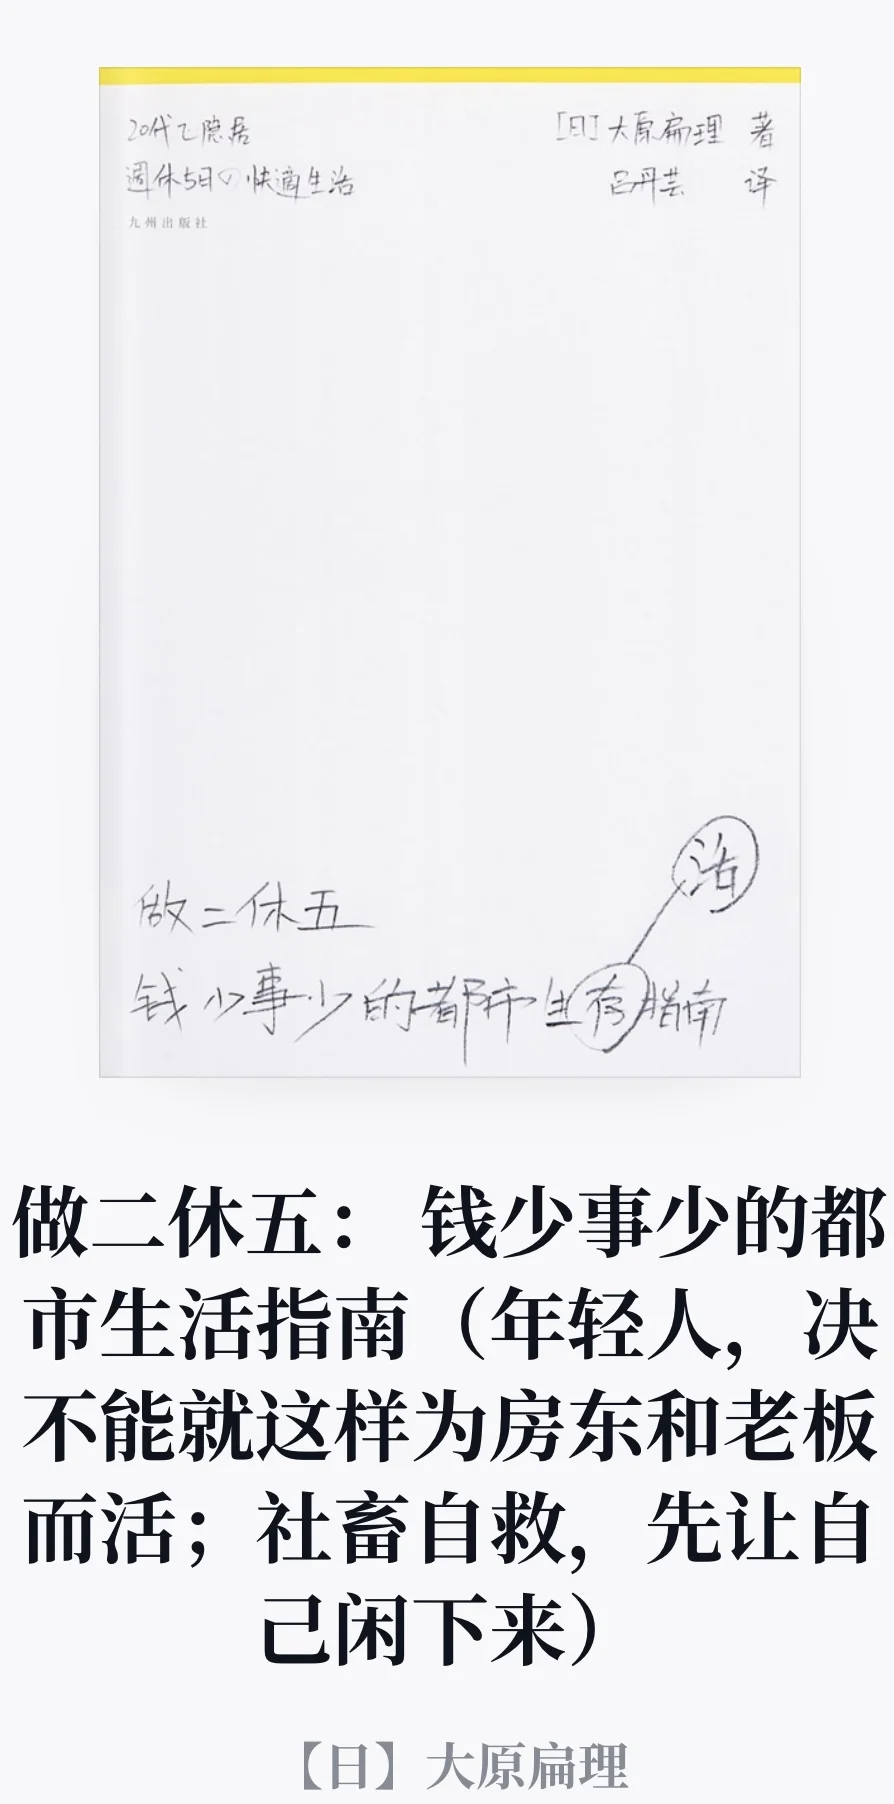 20代で隠居
週休5日の快適生活
九州出版社
[日]大原扁理 著
吕丹芸 译
活
做二休五
钱少事少的都市生存指南
做二休五： 钱少事少的都
市生活指南（年轻人，决
不能就这样为房东和老板
而活；社畜自救，先让自
己闲下来）
【日】大原扁理